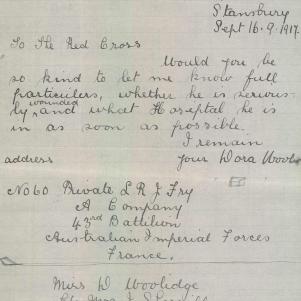 Stansbury
Sept 16.9.1917
To The Red Cross
Would you be
so kind to let me know full
particulers, whether he is serious-
ly wounded and what Hospital he is
in as soon as possible.
I remain
address your Dora
No 60 Private L R J Fry
A Company
43rd Battilion
Australian Imperial Forces
France.
Miss D Woolidge